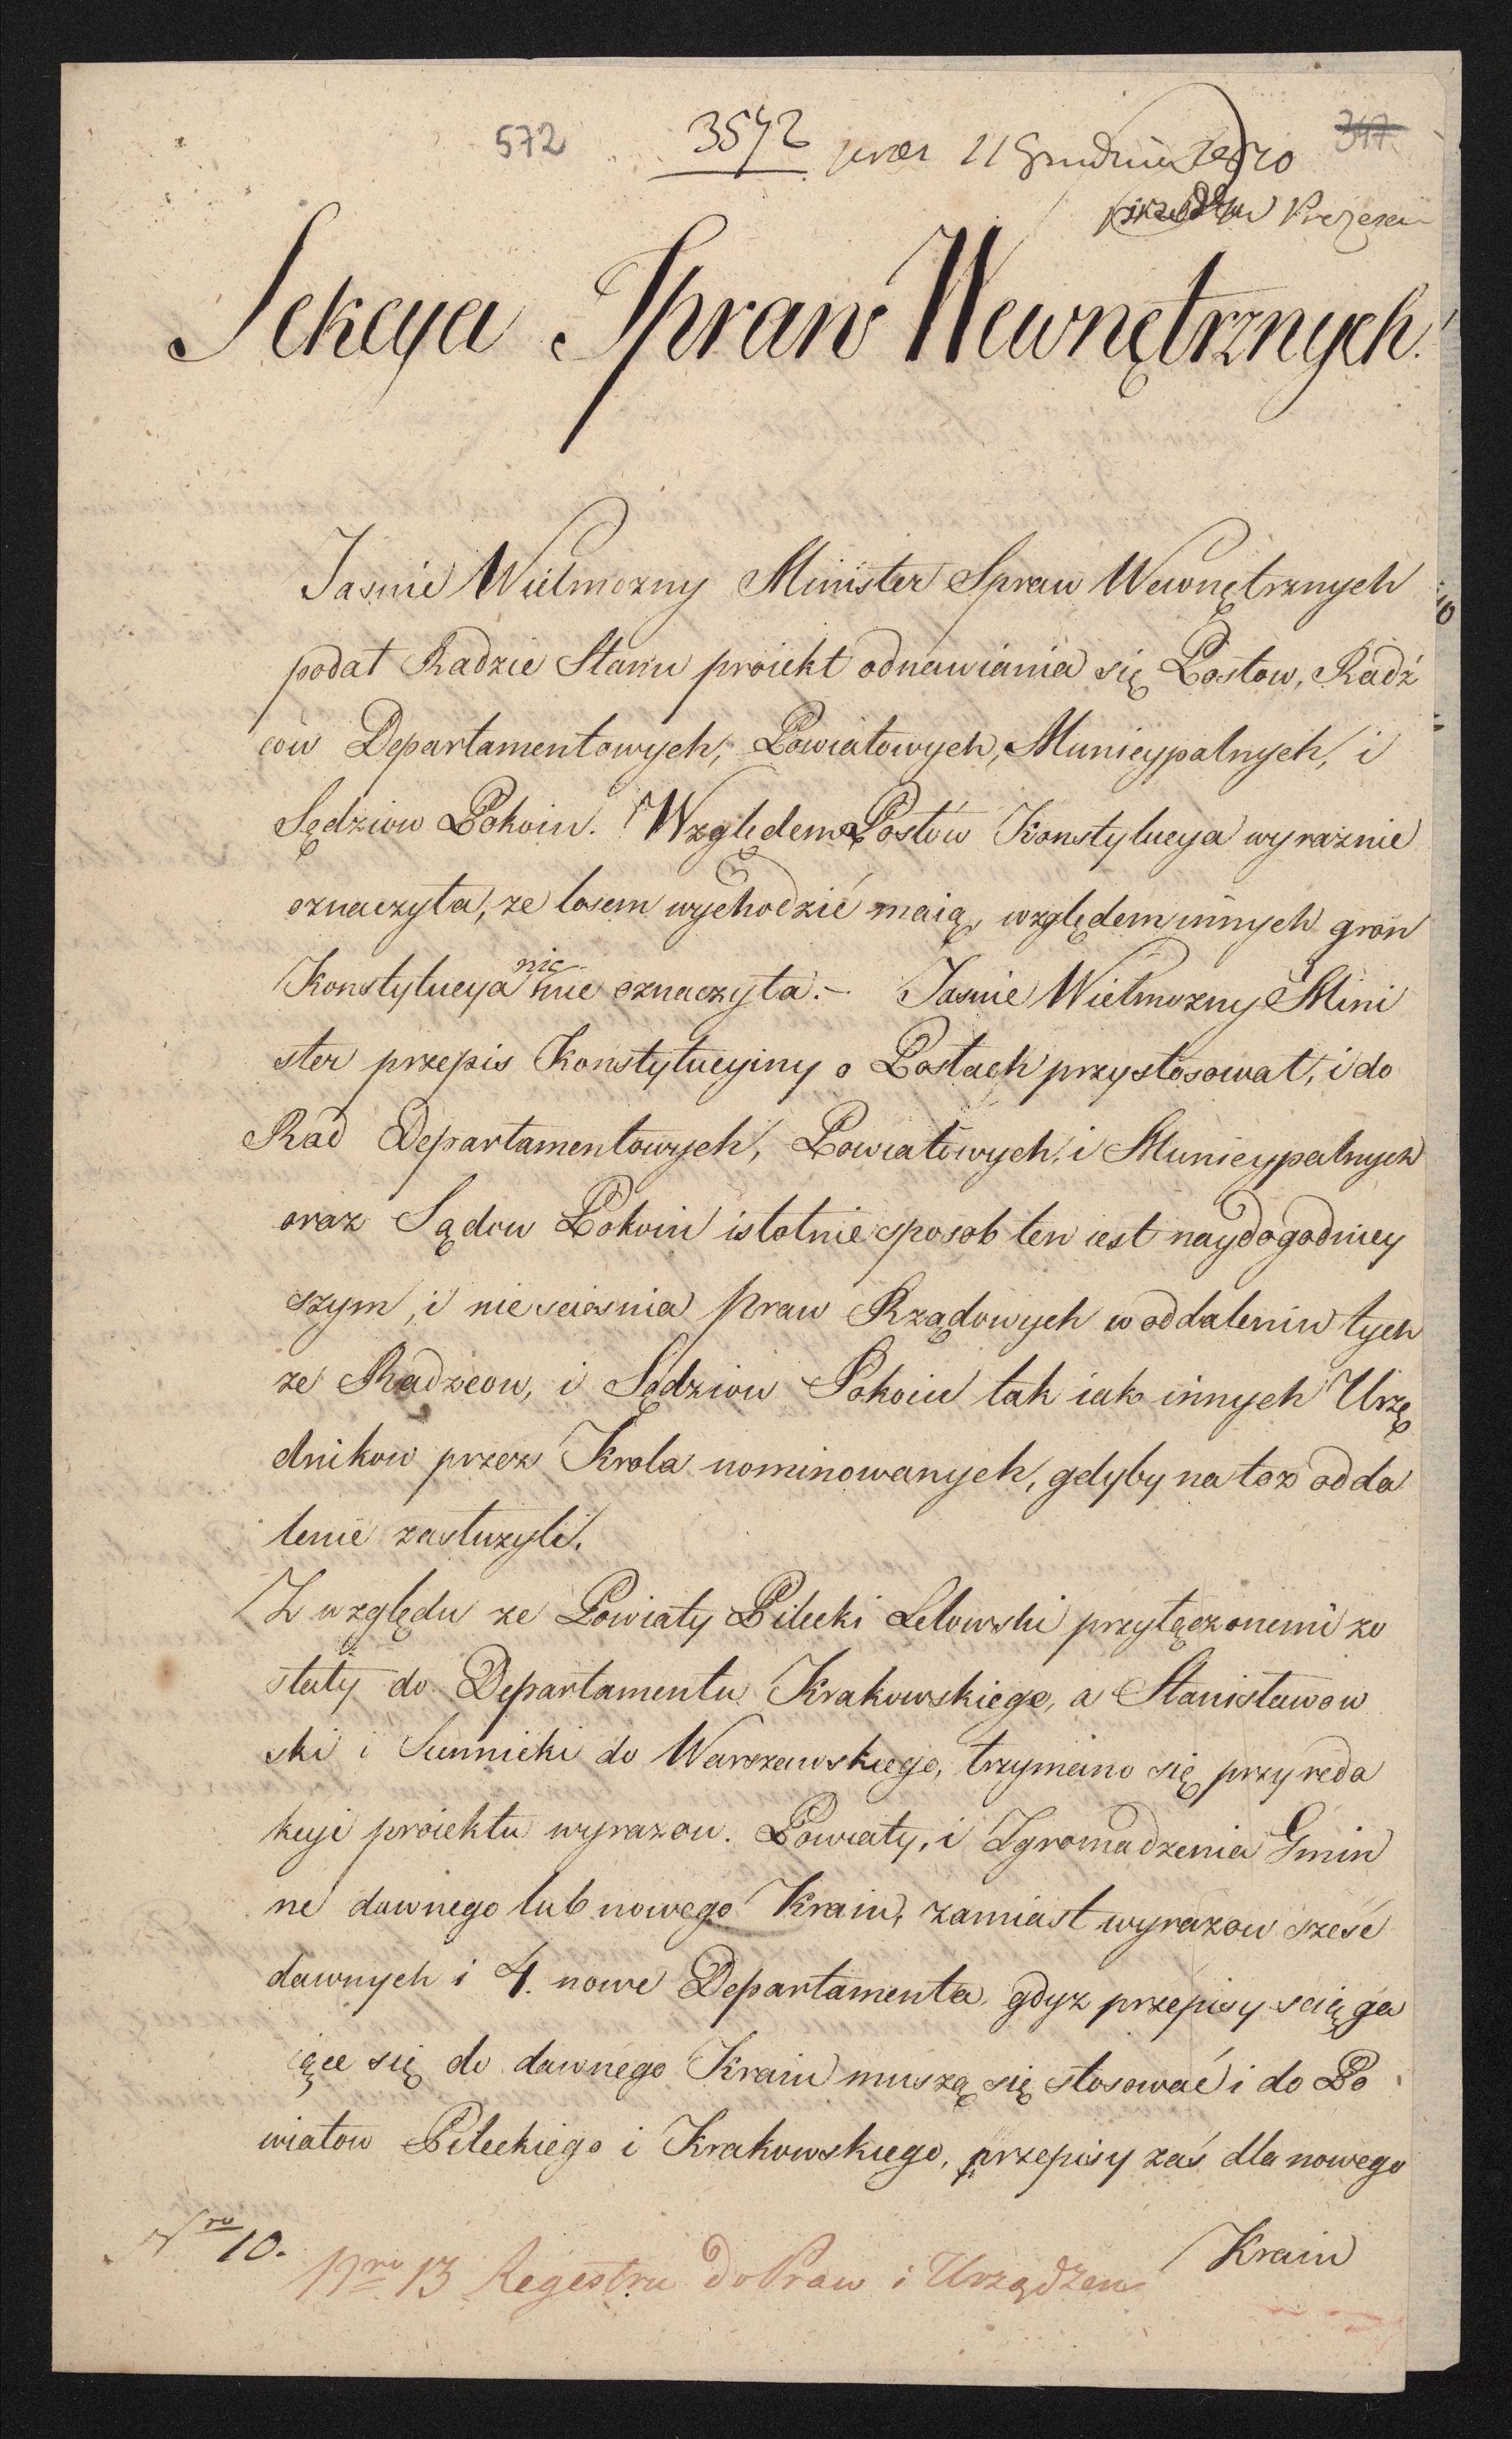 572 3542 11 Grudnia 1810 347
Prezesa
Sekcya Spraw Wewnętrznych.
Jasnie Wielmozny Minister Spraw Wewnętrznych
podał Radzie Stanu proiekt odnawiania się Posłow, Radź
ców Departamentowych, Powiatowych, Municypalnych, i
Sędziow Pokoiu. Względem Posłów Konstytucya wyraznie
oznaczyła, ze losem wychodzić maią, względem innych gron
Konstytucya nic nie oznaczyła. – Jasnie Wielmozny Mini
ster przepis Konstytucyiny o Posłach przystosował, i do
Rad Departamentowych, Powiatowych, i Municypalnych
oraz Sądow Pokoiu istotnie sposob ten iest naydogodniey
szym, i niesciesnia Praw Rządowych w oddaleniu tych
ze Radzcow, i Sędziow Pokoiu tak iak innych Urzę
dnikow przez Krola nominowanych, gdyby na toz odda
lenie zasłuzyli.
Z względu ze Powiaty Pilecki Lelowski przyłączonemi zo
stały do Departamentu Krakowskiego, a Stanisławow
ski i Siennicki do Warszawskiego, trzymano się przy reda
kcyi proiektu wyrazow. Powiaty, i Zgromadzenia Gmin
ne dawnego lub nowego Kraiu, zamiast wyrazow sześć
dawnych i 4. nowe Departamenta, gdyz przepisy sciąga
iące się do dawnego Kraiu muszą się stosować i do Po
wiatow Pileckiego i Krakowskiego, przepisy zaś dla nowego
Kraiu
Nro 10.
Nro 13 Regestru do Praw i Urządzen